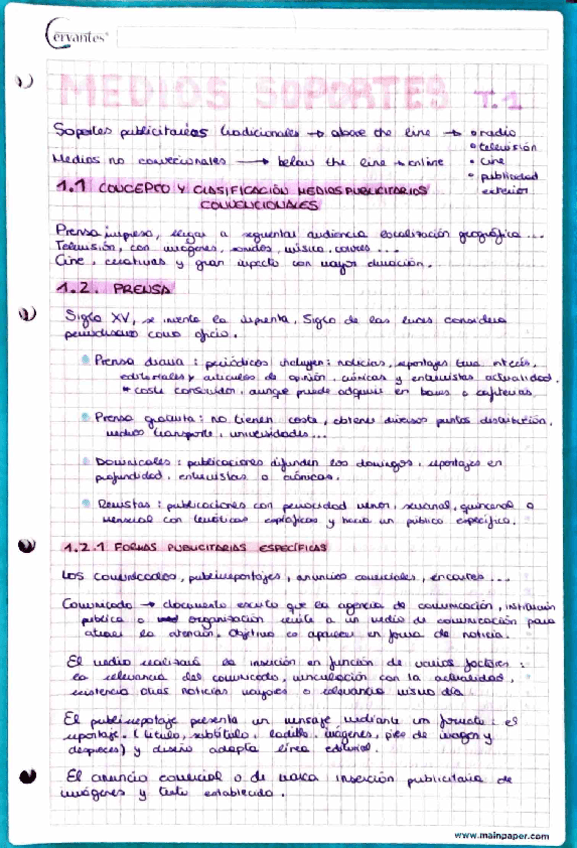 Cervantes
MEDIOS SOPORTES T.1
Soportes publicitarios tradicionales → above the line → • radio
• televisión
Medios no convecionales → below the line → online • cine
• publicidad
exterior
1.1 CONCEPTO Y CLASIFICACIÓN MEDIOS PUBLICITARIOS
CONVENCIONALES
Prensa impresa, llegar a segmentar audiencia localización geográfica ...
Televisión, con imágenes, sonidos, música, colores ...
Cine, creativas y gran impacto con mayor duración.
1.2. PRENSA
Siglo XV, se inventa la imprenta, Siglo de las luces considera
periodismo como oficio.
• Prensa diaria : periódicos incluyen: noticias, reportajes interés,
editoriales y artículos de opinión, crónicas y entrevistas actualidad.
* coste consumidor, aunque puede adquirir en bares o cafeterías
• Prensa gratuita : no tienen coste, obtener diversos puntos distribución,
medios transporte, universidades ...
• Dominicales : publicaciones difunden los domingos, reportajes en
profundidad, entrevistas o crónicas.
• Revistas : publicaciones con periocidad menor, semanal, quincenal o
mensual con temáticas específicas y hacia un público específico.
1.2.1 FORMAS PUBLICITARIAS ESPECÍFICAS
Los comunicados, publirreportajes, anuncios comerciales, encartes ...
Comunicado → documento escrito que la agencia de comunicación, institución
pública o organización remite a un medio de comunicación para
atraer la atención. Objetivo es aparecer en forma de noticia.
El medio realizará la inserción en función de varios factores :
la relevancia del comunicado, vinculación con la actualidad,
existencia otras noticias mayores o relevancia mismo día.
El publirreportaje presenta un mensaje mediante un formato : el
reportaje. (título, subtítulo, ladillo, imágenes, pies de imagen y
despieces) y diseño adapta línea editorial.
El anuncio comercial o de marca inserción publicitaria de
imágenes y texto establecido.
www.mainpaper.com